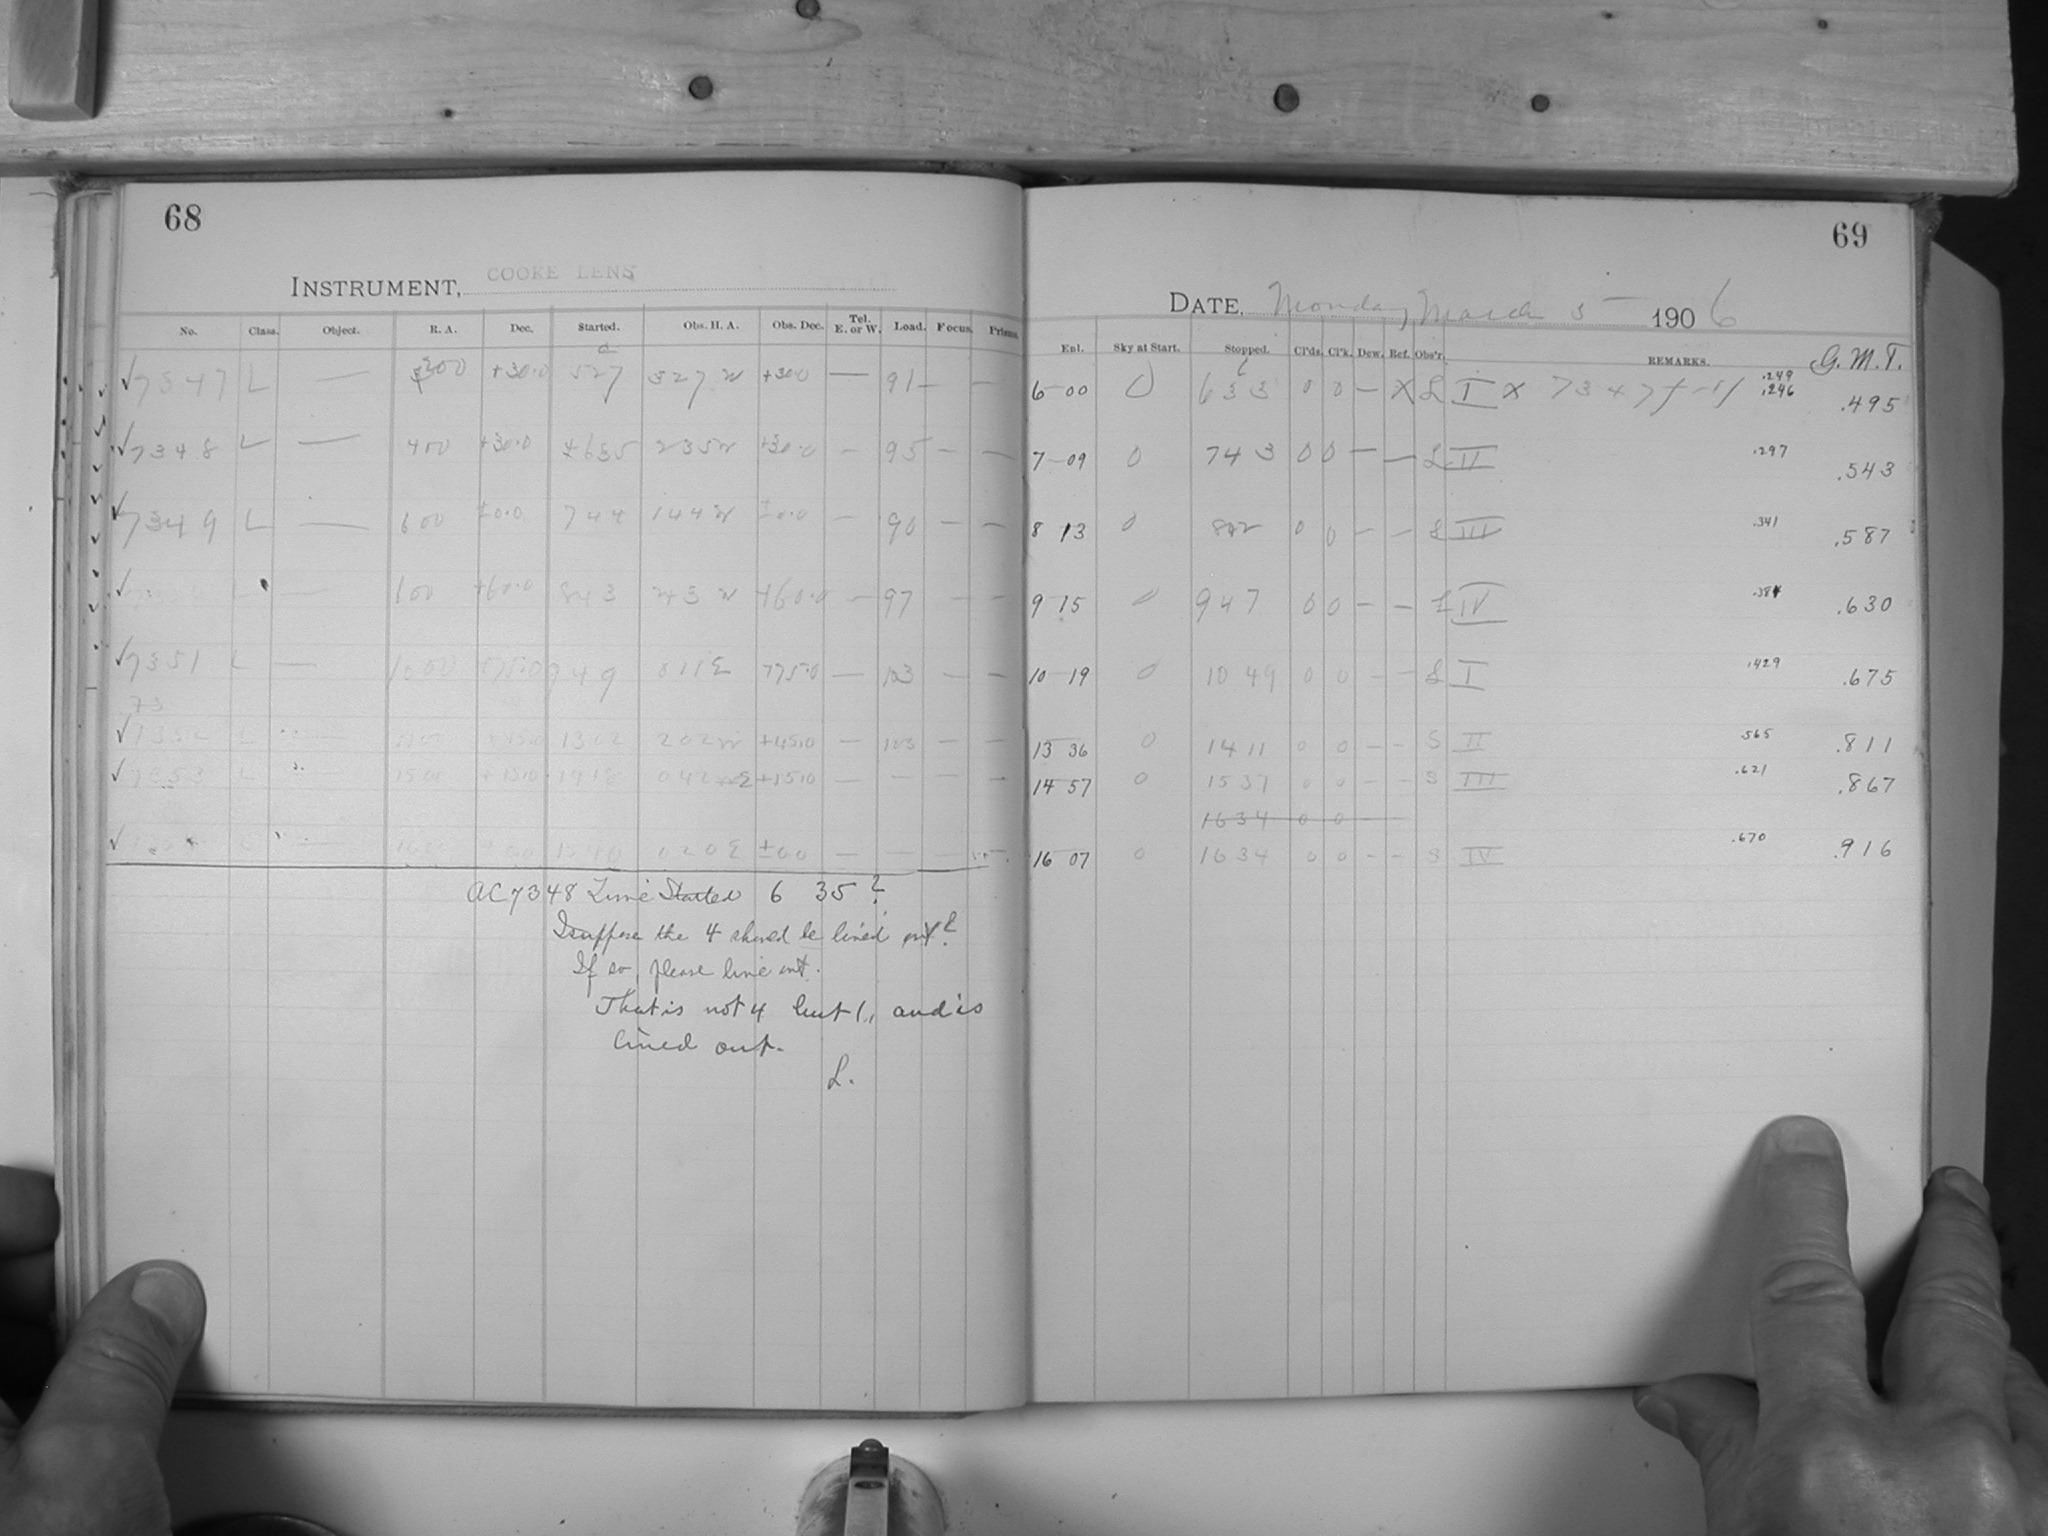 68
INSTRUMENT, COOKE LENS
No. Class. Object. R. A. Dec. Started. Obs. H. A. Obs. Dec. Tel. E. or W. Load. Focus. Prisms.
7347 L — 300 +30.0 527 327 W +30.0 — 91 — —
7348 L — 400 +30.0 635 235 W +30.0 — 95 — —
7349 L — 600 ±0.0 744 144 W ±0.0 — 90 — —
L — 600 +60.0 843 243 W +60.0 — 97 — —
7351 L — 1000 +75.0 949 011 E +75.0 — 103 — —
73
7352 L — +45.0 1302 202 W +45.0 — 103 — —
7353 L — 1500 +15.0 1418 042 E +15.0 — — — —
L — 020 E ±00 — — — —
AC 7348 Time Started 6 35?
I suppose the 4 should be lined out?
If so, please line out.
That is not 4 but 1, and is
lined out.
L.
69
DATE, Monday March 5 1906
Enl. Sky at Start. Stopped. Cl'ds. Cl'k. Dew. Ref. Obs'r. REMARKS. G. M. T.
6 00 0 633 0 0 — X L I X 7347 .249 .246 .495
7 09 0 743 0 0 — — L II .297 .543
8 13 0 842 0 0 — — L III .341 .587
9 15 0 947 0 0 — — L IV .384 .630
10 19 0 1049 0 0 — — L I .429 .675
13 36 0 1411 0 0 — — S II .565 .811
14 57 0 1537 0 0 — — S III .621 .867
1634 0 0 —
16 07 0 1634 0 0 — — S IV .670 .916